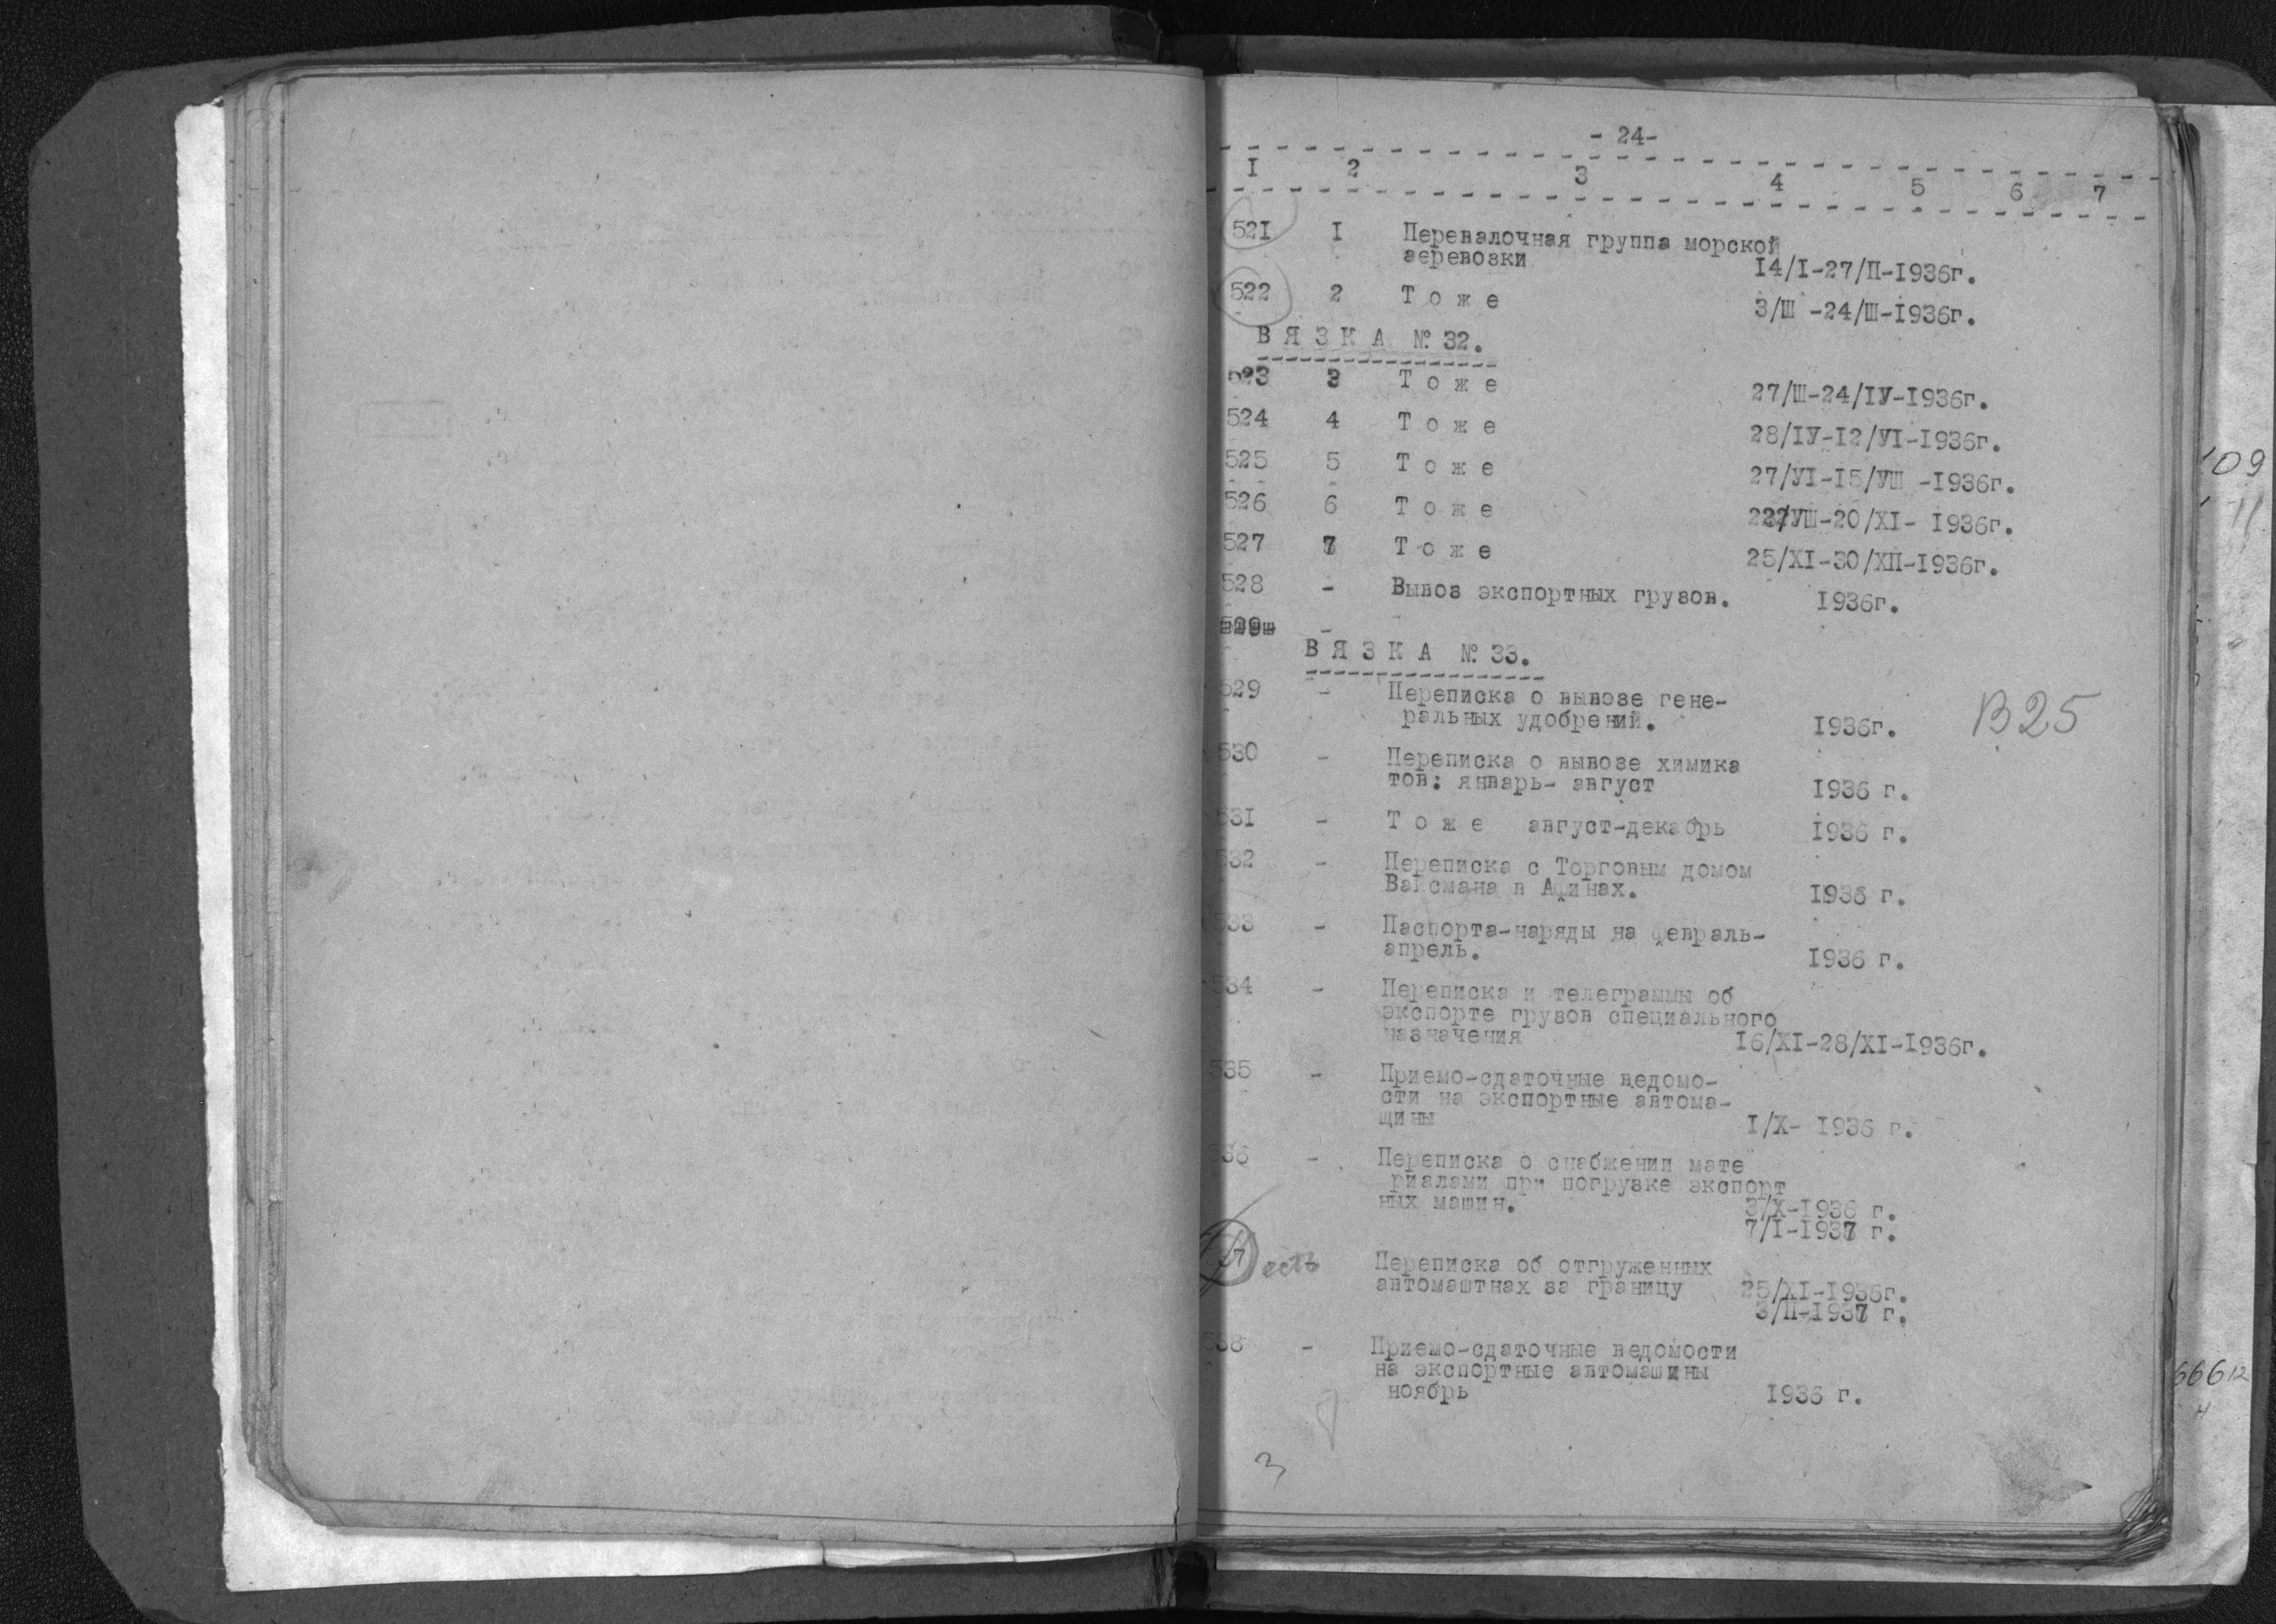 - 24-
I 2 3 4 5 6 7
521 I Перевалочная группа морской
аеревозки 14/I-27/П-I936г.
522 2 Т о ж е 3/Ш -24/Ш-I936г.
В Я З К А № 32.
523 3 Т о ж е 27/Ш-24/IУ-I936г.
524 4 Т о ж е 28/IУ-I2/УI-I936г.
525 5 Т о ж е 27/УI-I5/УШ -I936г.
526 6 Т о ж е /УШ-20/XI- I936г.
527 7 Т о ж е 25/XI-30/XП-I936г.
528 - Вывоз экспортных грузов. I936г.
529 -
В Я З К А № 33.
529 - Переписка о вывозе гене-
ральных удобрений. I936г. В25
530 - Переписка о вывозе химика
тов: январь- август I936 г.
531 - Т о ж е август-декабрь I936 г.
532 - Переписка с Торговым домом
Вайсмана в Афинах. I936 г.
533 - Паспорта-наряды на февраль-
апрель. I936 г.
534 - Переписка и телеграммы об
экспорте грузов специального
назначения I6/XI-28/XI-I936г.
535 - Приемо-сдаточные ведомо-
сти на экспортные автома-
щины I/X- I936 г.
536 - Переписка о снабжении мате
риалами при погрузке экспорт
ных машин. 3/X-I936 г.
7/I-I937 г.
37 есть Переписка об отгруженных
автомаштнах за границу 25/XI-I936г.
3/П-I937 г.
538 - Приемо-сдаточные ведомости
на экспортные автомашины
ноябрь I936 г.
3
109
11
66612